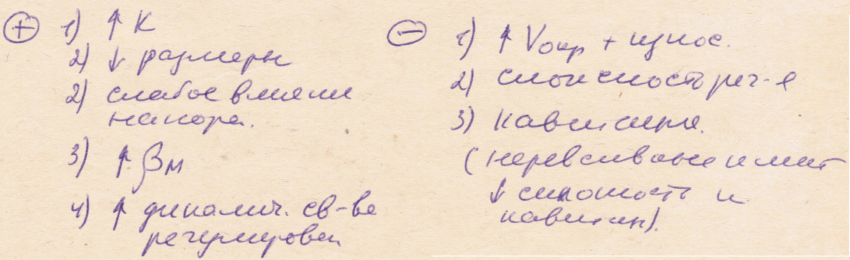 ⊕ 1) ↑ К
2) ↓ размеры
2) слабое влияни
напора.
3) ↑ βм
4) ↑ динамич. св-ва
регулирован
⊖ 1) ↑ Vокр + износ.
2) сложность рег-я
3) кавитация.
(нереверсивные имеют
↓ сложность и
кавитац).